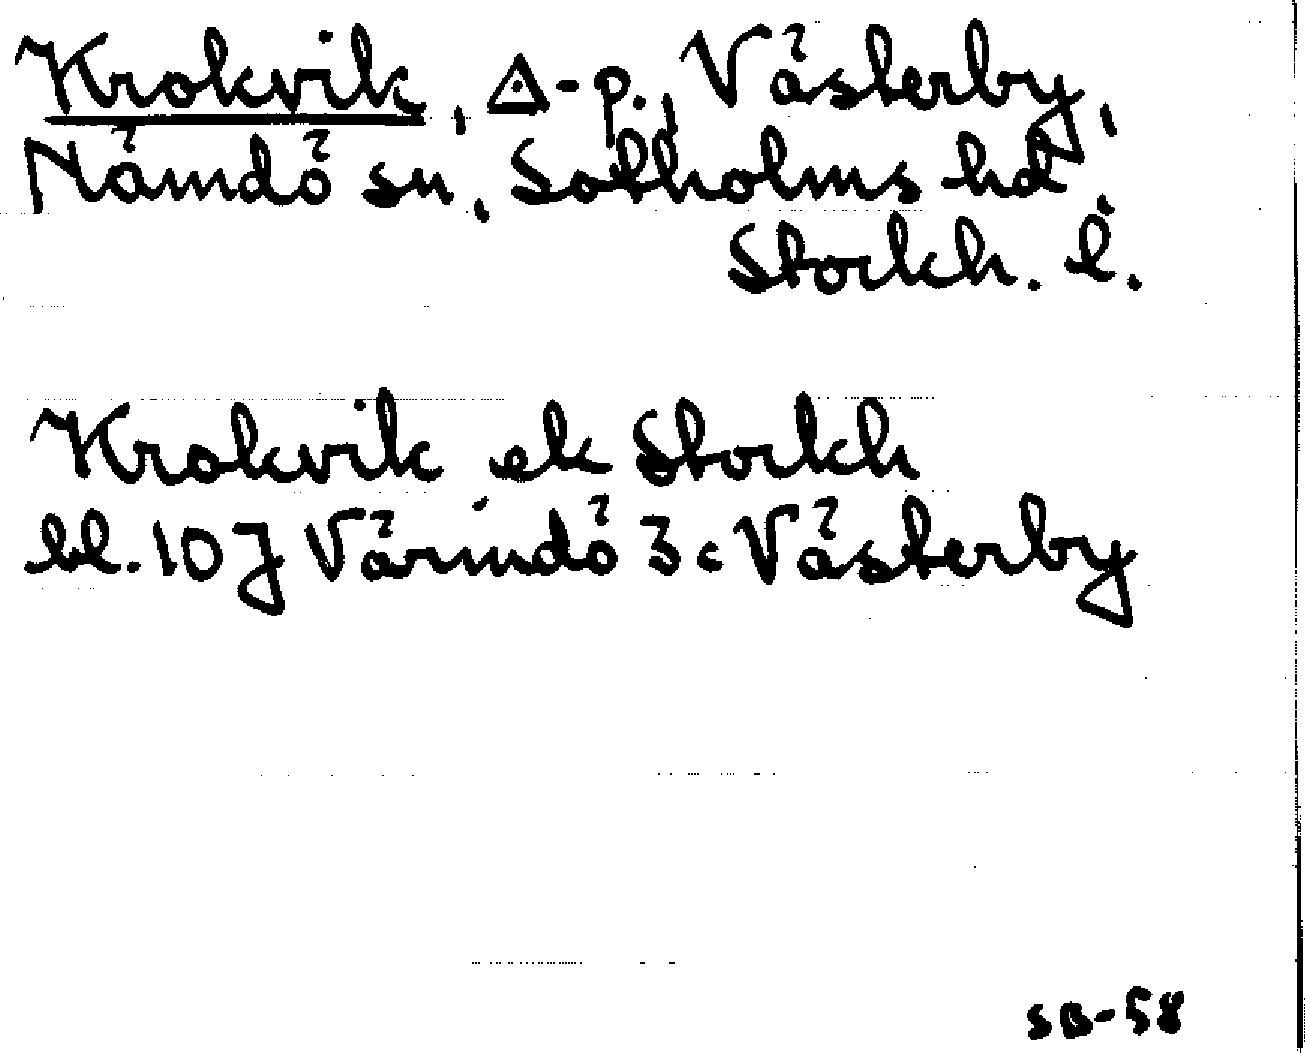 Krokvik, △-p., Västerby,
Nämdö sn, Sotholms hd,
Stockh. l.
Krokvik ek Stockh
bl. 10J Värmdö 3c Västerby
SB-58